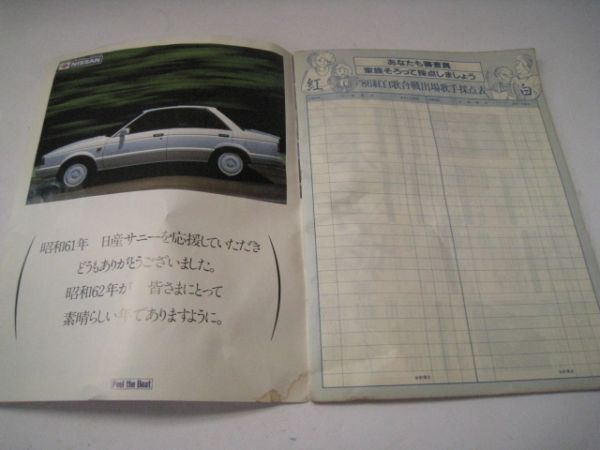 NISSAN
昭和61年 日産サニーを応援していただき
どうもありがとうございました。
昭和62年が 皆さまにとって
素晴らしい年でありますように。
Feel the Beat
あなたも審査員
家族そろって採点しましょう
紅
'86紅白歌合戦出場歌手採点表
白